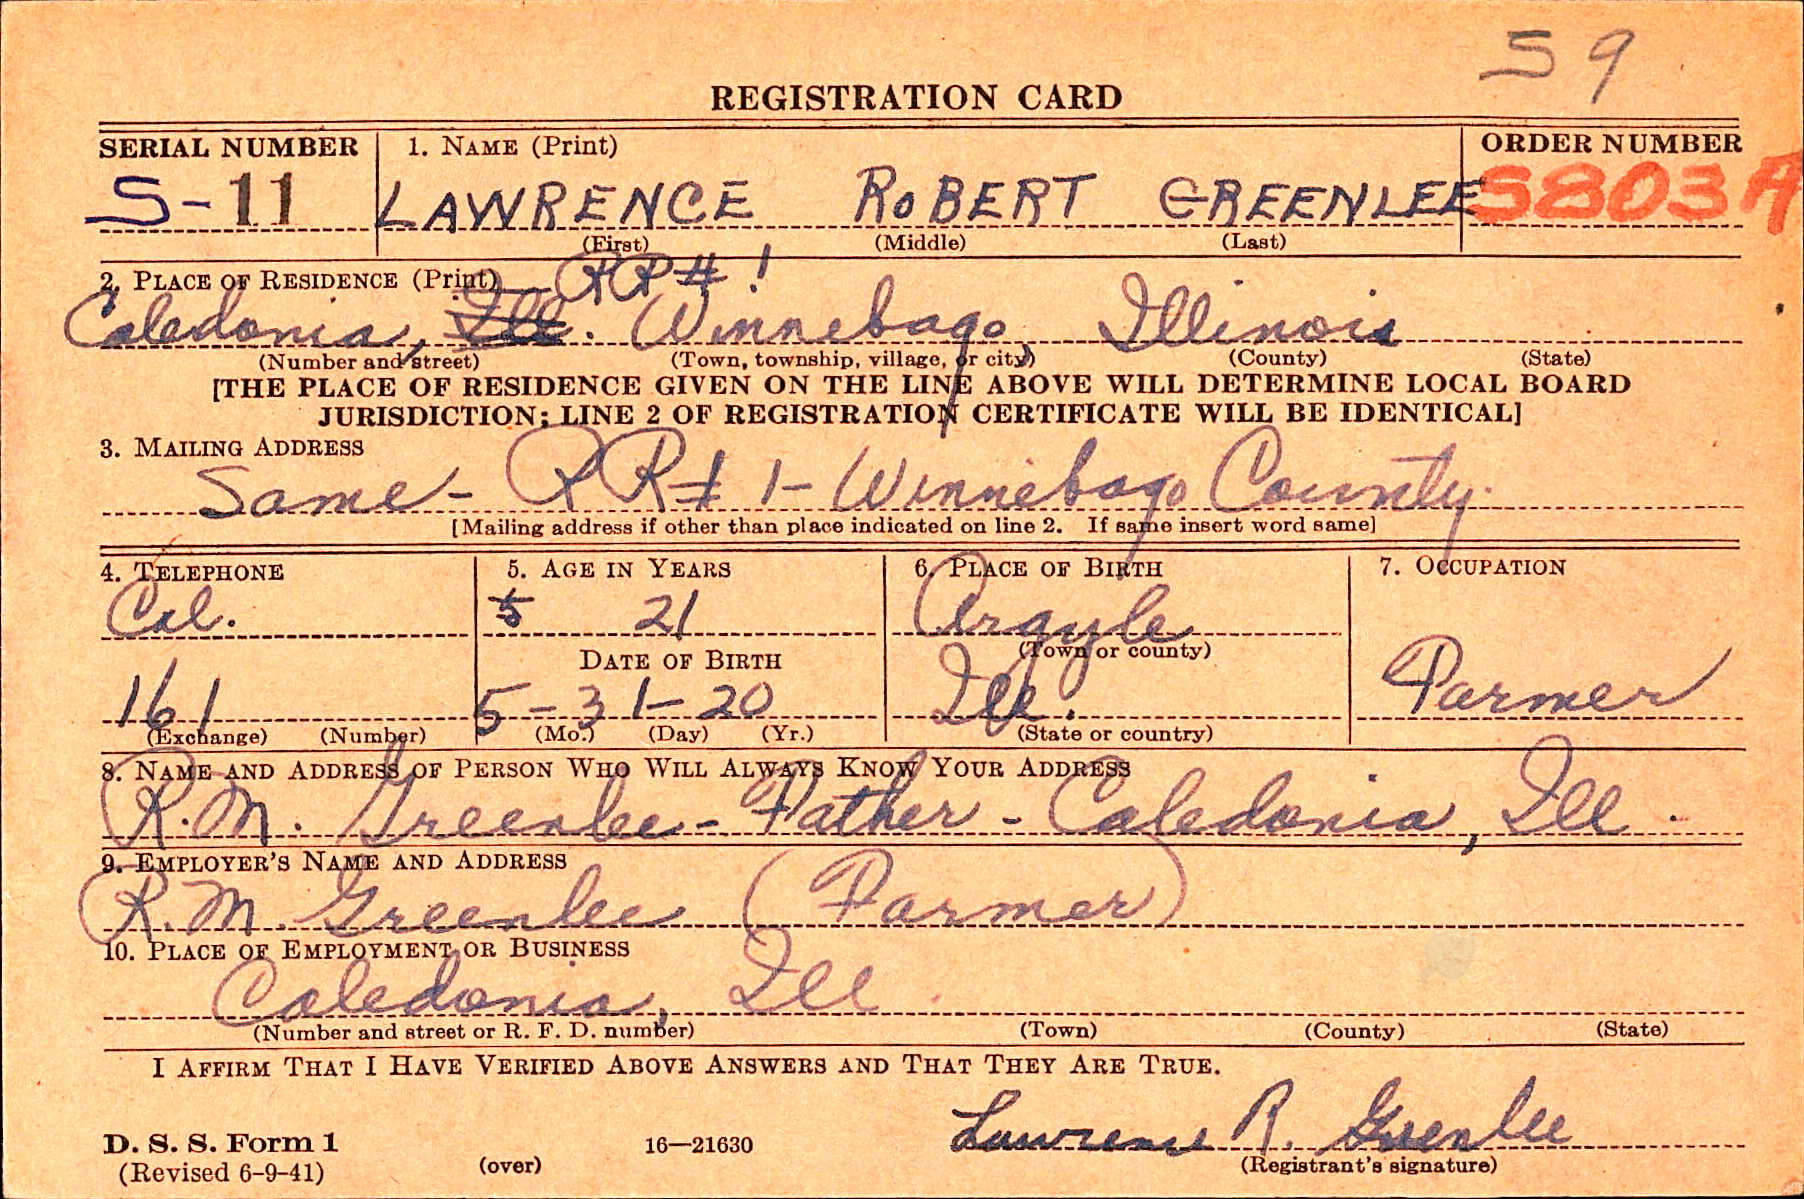 S 9
REGISTRATION CARD
SERIAL NUMBER 1. NAME (Print) ORDER NUMBER
S-11 LAWRENCE ROBERT GREENLEE S803A
(First) (Middle) (Last)
2. PLACE OF RESIDENCE (Print) RR# 1
Caledonia, Ill. Winnebago, Illinois
(Number and street) (Town, township, village, or city) (County) (State)
[THE PLACE OF RESIDENCE GIVEN ON THE LINE ABOVE WILL DETERMINE LOCAL BOARD
JURISDICTION; LINE 2 OF REGISTRATION CERTIFICATE WILL BE IDENTICAL]
3. MAILING ADDRESS
Same - RR# 1 - Winnebago County.
[Mailing address if other than place indicated on line 2. If same insert word same]
4. TELEPHONE 5. AGE IN YEARS 6. PLACE OF BIRTH 7. OCCUPATION
Cal. 5 21 Argyle
(Town or county)
DATE OF BIRTH
161 5-31-20 Ill. Farmer
(Exchange) (Number) (Mo.) (Day) (Yr.) (State or country)
8. NAME AND ADDRESS OF PERSON WHO WILL ALWAYS KNOW YOUR ADDRESS
R.M. Greenlee - Father - Caledonia, Ill.
9. EMPLOYER'S NAME AND ADDRESS
R.M. Greenlee (Farmer)
10. PLACE OF EMPLOYMENT OR BUSINESS
Caledonia, Ill.
(Number and street or R. F. D. number) (Town) (County) (State)
I AFFIRM THAT I HAVE VERIFIED ABOVE ANSWERS AND THAT THEY ARE TRUE.
Lawrence R. Greenlee
D. S. S. Form 1 16—21630
(Revised 6-9-41) (over) (Registrant's signature)